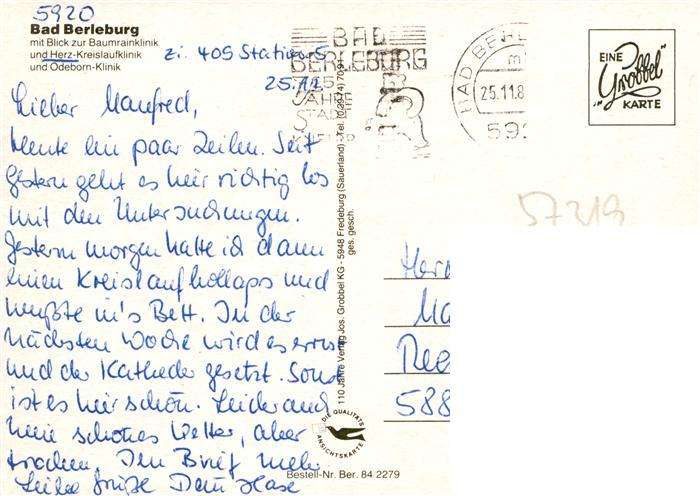 5920
Bad Berleburg
mit Blick zur Baumrainklinik
und Herz-Kreislaufklinik
und Odeborn-Klinik
Zi. 405 Station 5
25.11.
Lieber Manfred,
heute ein paar Zeilen. Seit
gestern geht es hier richtig los
mit den Untersuchungen.
Gestern morgen hatte ich dann
einen Kreislaufkollaps und
mußte in's Bett. In der
nächsten Woche wird es ernst
und der Katheder gesetzt. Sonst
ist es hier schön. Leider auch
kein schönes Wetter, aber
trocken. Den Brief mehr
Liebe Grüße Dein Hase
BAD
BERLEBURG
JAHRE
STADT
BAD BERLE
25.11.8
592
EINE
"Grobbel"
KARTE
57319
110 Jahre Verlag Jos. Grobbel KG - 5948 Fredeburg (Sauerland) - Tel. (0 29 74) 70 91
ges. gesch.
DIE QUALITÄTS
ANSICHTSKARTE
Bestell-Nr. Ber. 84 2279
Herr
Ma
588